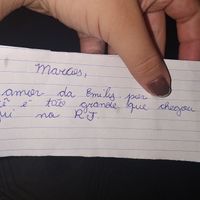 Marcos,
amor da Emily por
cê é tão grande que chegou
qui na RJ.